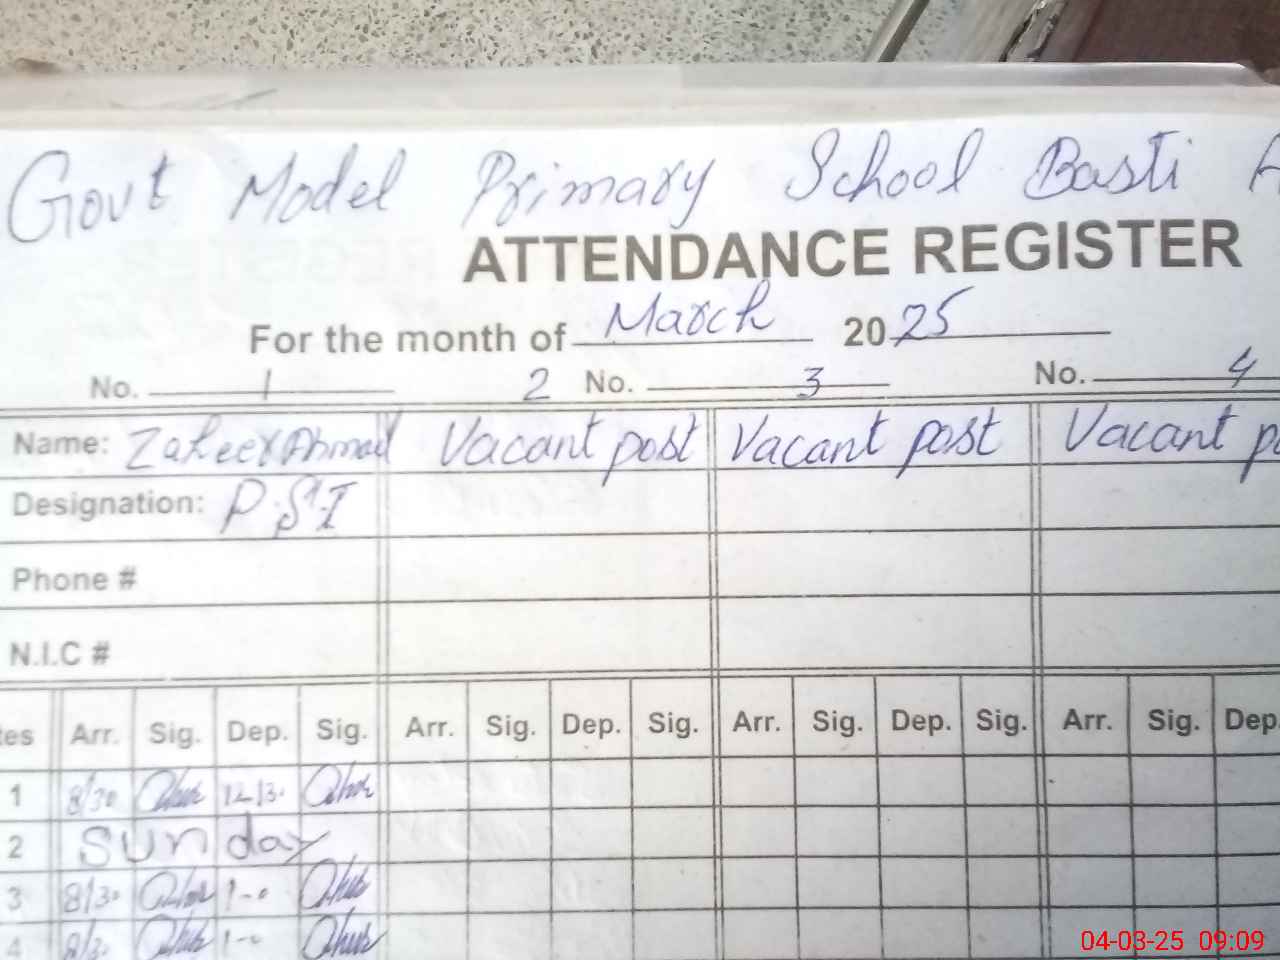 Govt Model Primary School Basti
ATTENDANCE REGISTER
For the month of March 2025
No. 1 2 No. 3 No. 4
Name: Zaheer Ahmad Vacant post Vacant post Vacant
Designation: P.S.T
Phone #
N.I.C #
Arr. Sig. Dep. Sig. Arr. Sig. Dep. Sig. Arr. Sig. Dep. Sig. Arr. Sig. Dep.
1 8/30 12/30
2 Sunday
3 8/30 1-0
4 8/30 1-0
04-03-25 09:09